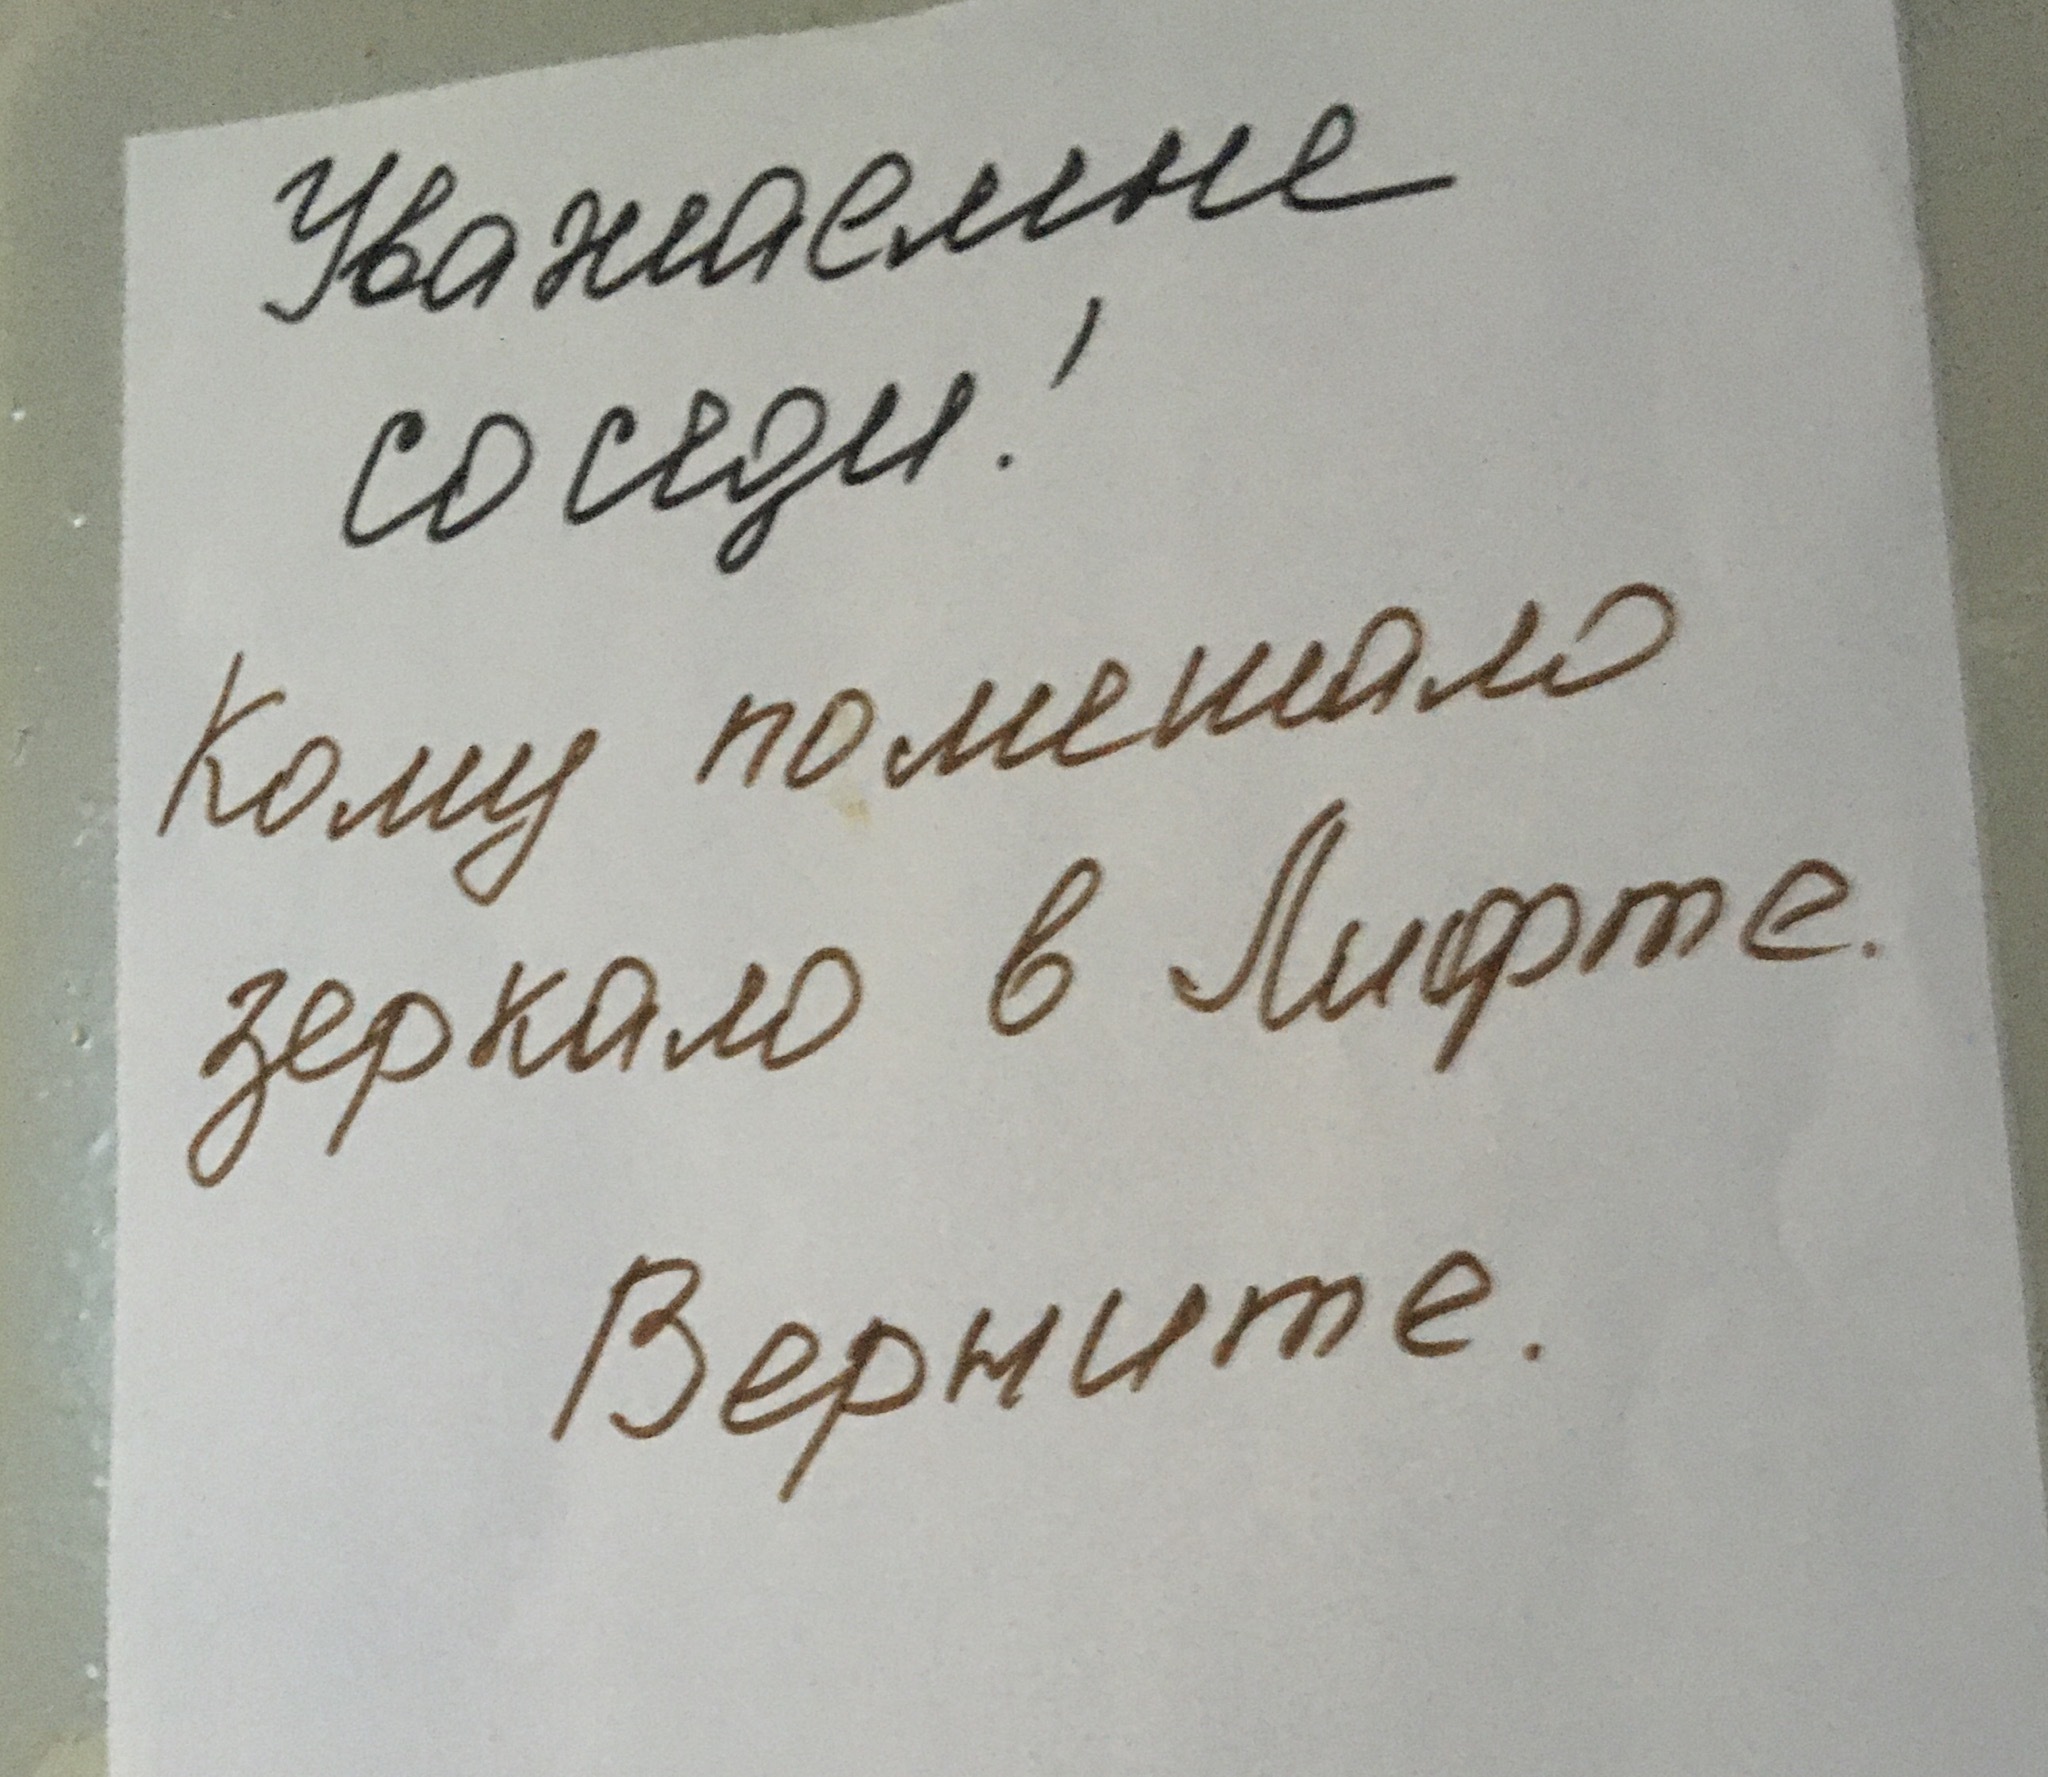 Уважаемые
соседи!
Кому помешало
зеркало в Лифте.
Верните.